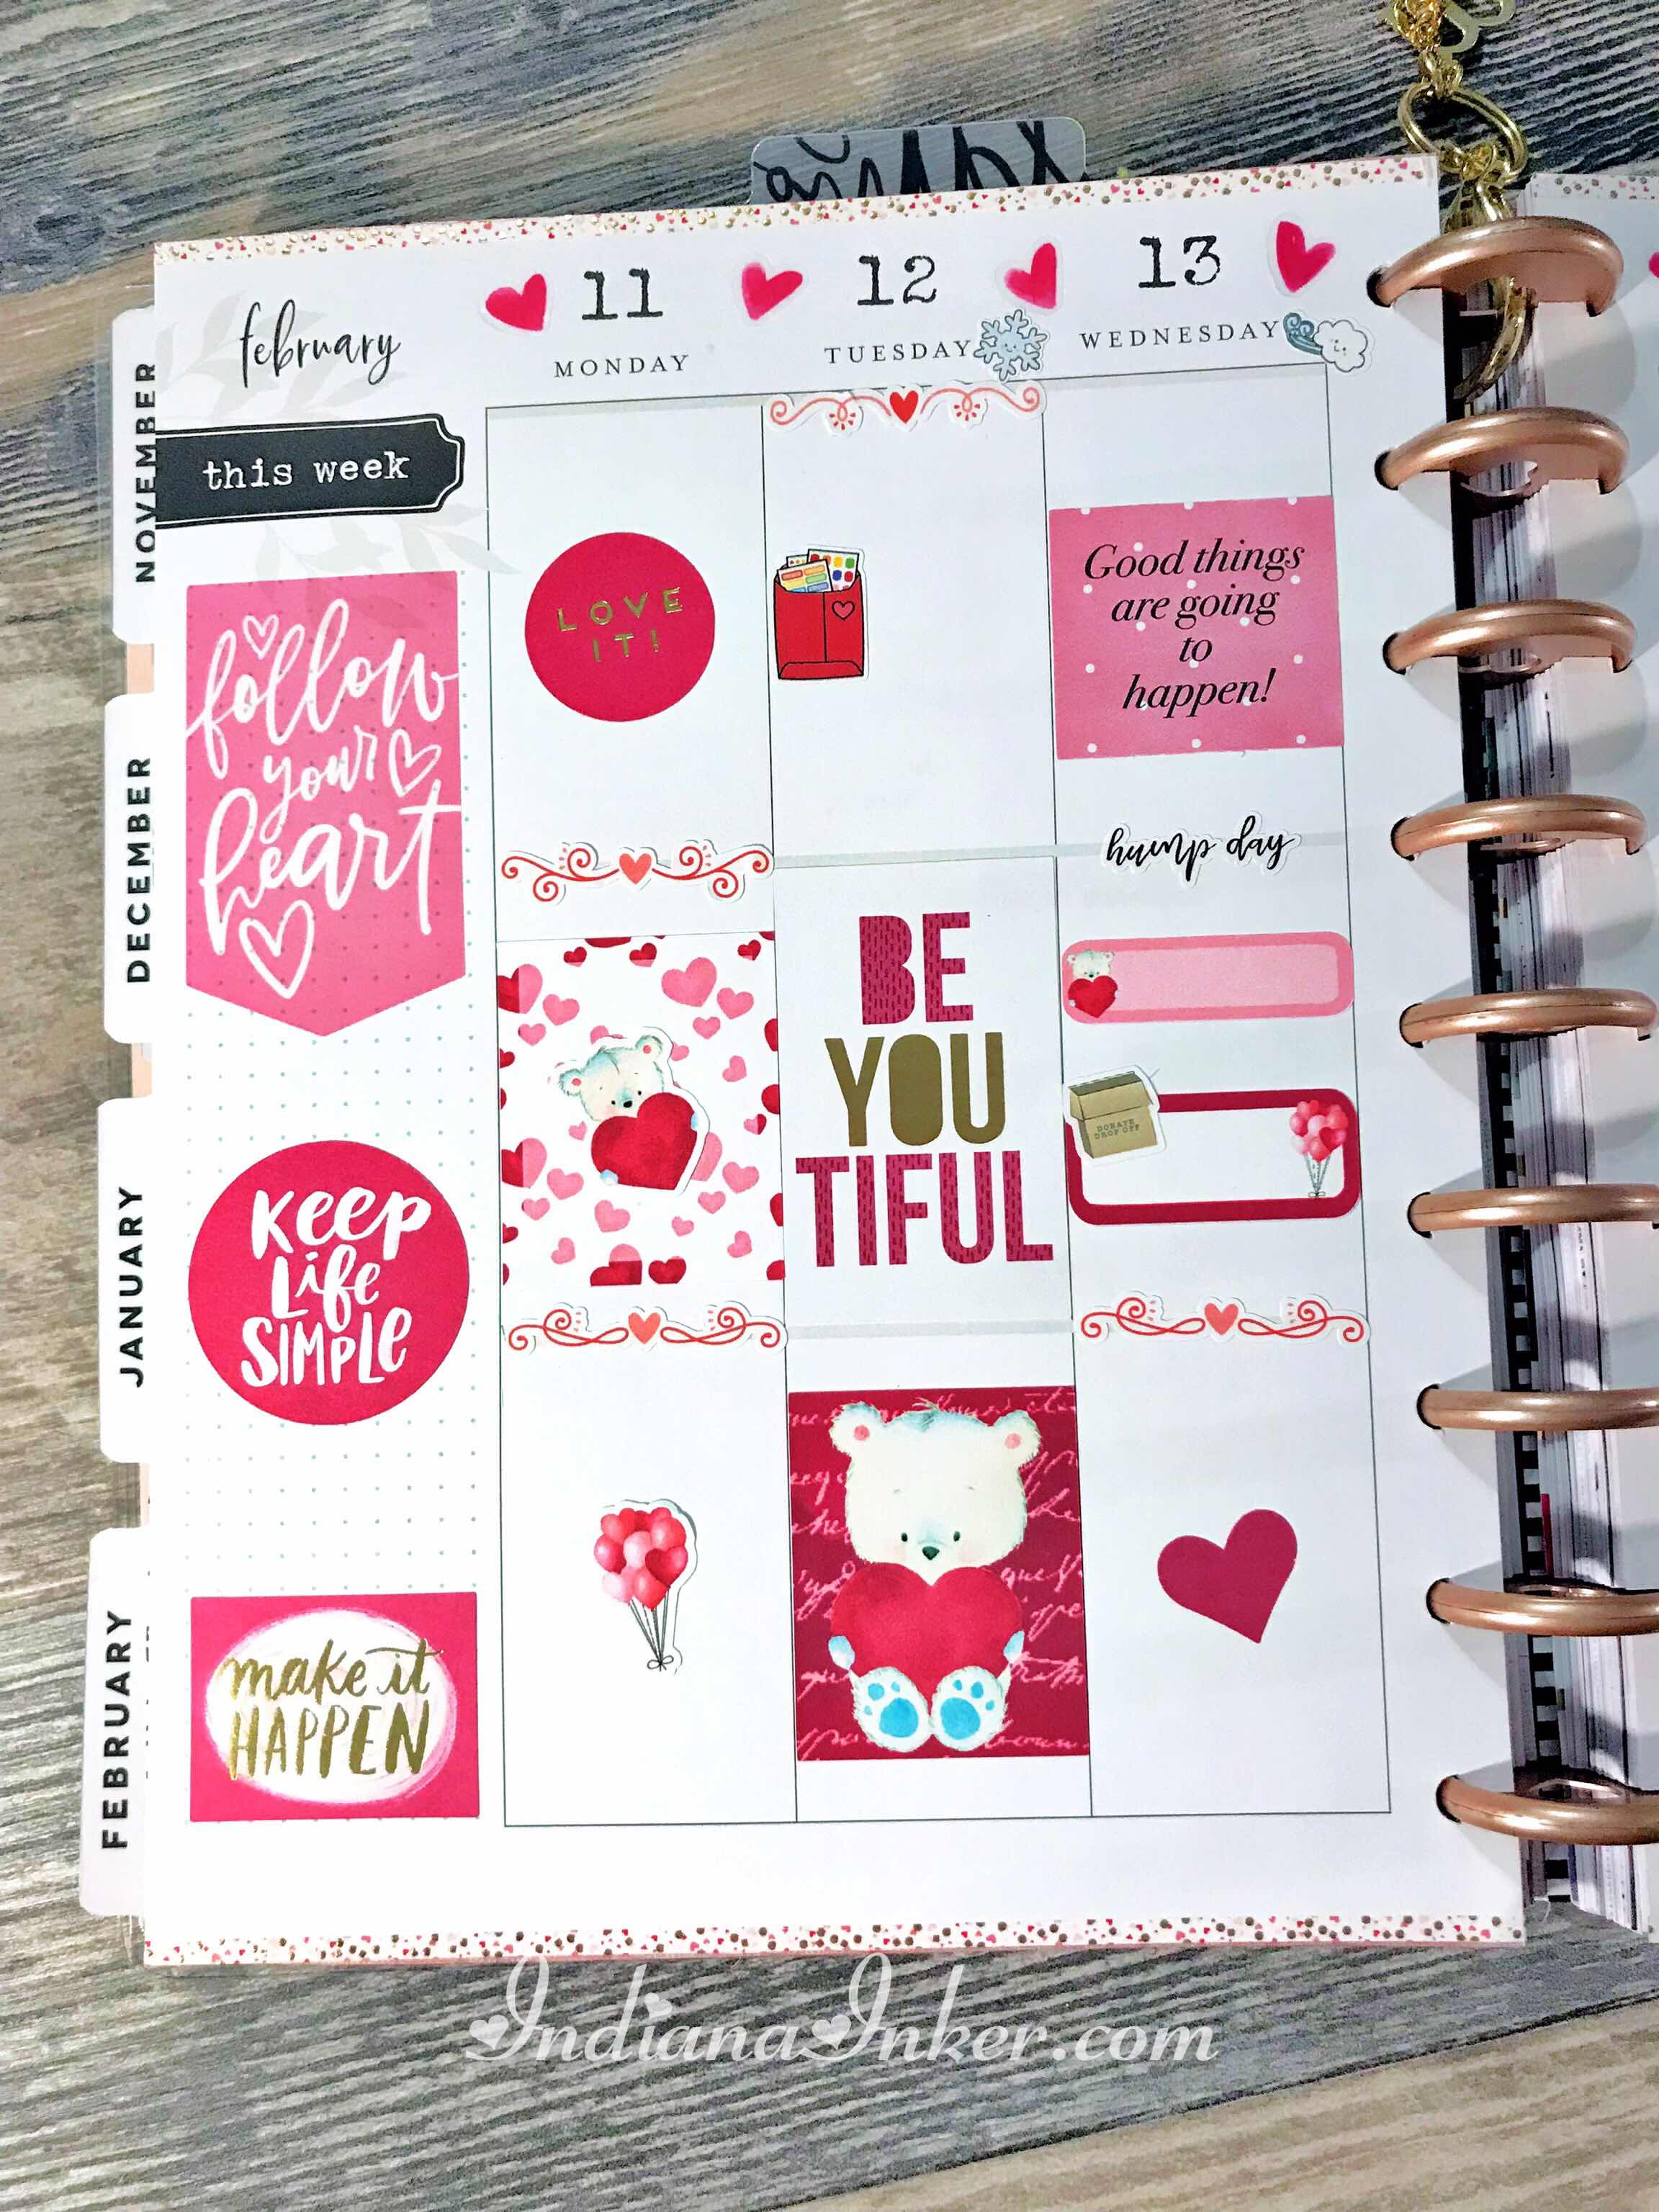 february
11
12
13
MONDAY
TUESDAY
WEDNESDAY
this week
follow
your
heart
Keep
Life
SIMPLE
make it
HAPPEN
LOVE
IT!
BE
YOU
TIFUL
Good things
are going
to
happen!
hump day
DONATE
DROP OFF
NOVEMBER
DECEMBER
JANUARY
FEBRUARY
IndianaInker.com